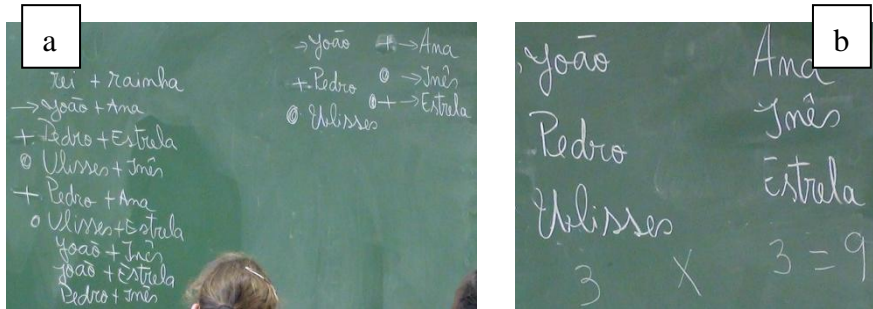 a
rei + rainha
→ João + Ana
+ Pedro + Estrela
o Ulisses + Inês
+ Pedro + Ana
o Ulisses + Estrela
João + Inês
João + Estrela
Pedro + Inês
→ João + → Ana
+ Pedro o → Inês
o Ulisses o+ → Estrela
b
João Ana
Pedro Inês
Ulisses Estrela
3 x 3 = 9